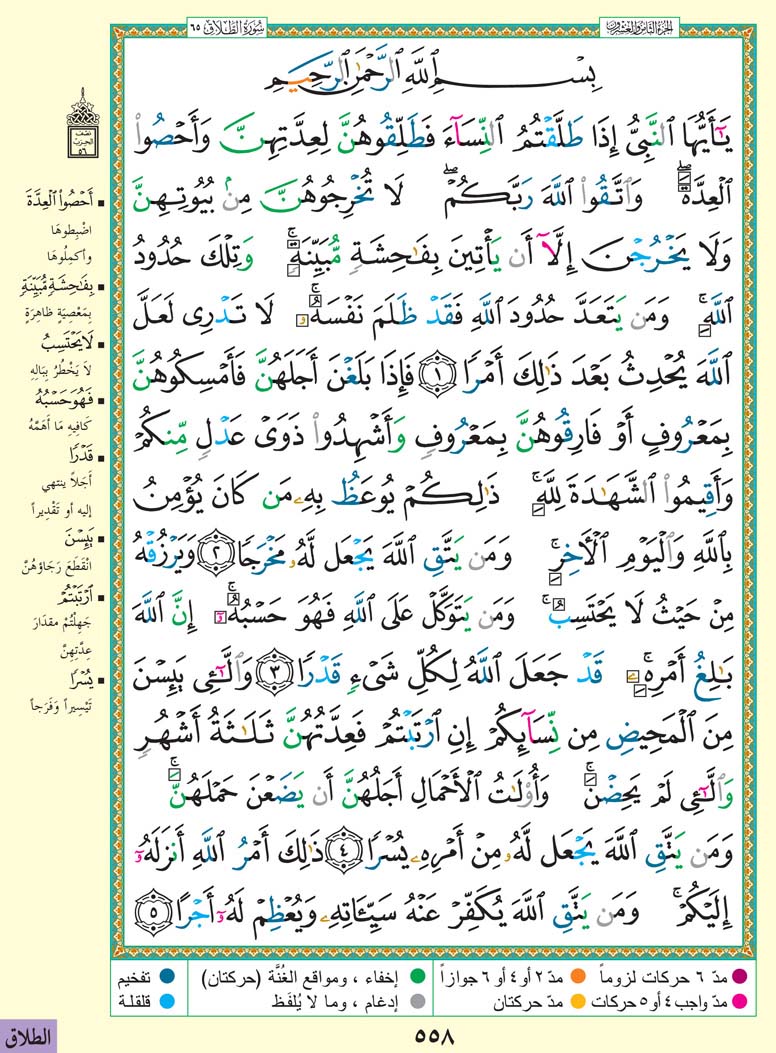 الجزء الثامن والعشرون
سورة الطلاق ٦٥
بِسْمِ اللَّهِ الرَّحْمَٰنِ الرَّحِيمِ
يَٰٓأَيُّهَا ٱلنَّبِىُّ إِذَا طَلَّقْتُمُ ٱلنِّسَآءَ فَطَلِّقُوهُنَّ لِعِدَّتِهِنَّ وَأَحْصُوا۟
ٱلْعِدَّةَ ۖ وَٱتَّقُوا۟ ٱللَّهَ رَبَّكُمْ ۖ لَا تُخْرِجُوهُنَّ مِنۢ بُيُوتِهِنَّ
وَلَا يَخْرُجْنَ إِلَّآ أَن يَأْتِينَ بِفَٰحِشَةٍ مُّبَيِّنَةٍ ۚ وَتِلْكَ حُدُودُ
ٱللَّهِ ۚ وَمَن يَتَعَدَّ حُدُودَ ٱللَّهِ فَقَدْ ظَلَمَ نَفْسَهُۥ ۚ لَا تَدْرِى لَعَلَّ
ٱللَّهَ يُحْدِثُ بَعْدَ ذَٰلِكَ أَمْرًا ١ فَإِذَا بَلَغْنَ أَجَلَهُنَّ فَأَمْسِكُوهُنَّ
بِمَعْرُوفٍ أَوْ فَارِقُوهُنَّ بِمَعْرُوفٍ وَأَشْهِدُوا۟ ذَوَىْ عَدْلٍ مِّنكُمْ
وَأَقِيمُوا۟ ٱلشَّهَٰدَةَ لِلَّهِ ۚ ذَٰلِكُمْ يُوعَظُ بِهِۦ مَن كَانَ يُؤْمِنُ
بِٱللَّهِ وَٱلْيَوْمِ ٱلْءَاخِرِ ۚ وَمَن يَتَّقِ ٱللَّهَ يَجْعَل لَّهُۥ مَخْرَجًا ٢ وَيَرْزُقْهُ
مِنْ حَيْثُ لَا يَحْتَسِبُ ۚ وَمَن يَتَوَكَّلْ عَلَى ٱللَّهِ فَهُوَ حَسْبُهُۥٓ ۚ إِنَّ ٱللَّهَ
بَٰلِغُ أَمْرِهِۦ ۚ قَدْ جَعَلَ ٱللَّهُ لِكُلِّ شَىْءٍ قَدْرًا ٣ وَٱلَّٰٓـِٔى يَئِسْنَ
مِنَ ٱلْمَحِيضِ مِن نِّسَآئِكُمْ إِنِ ٱرْتَبْتُمْ فَعِدَّتُهُنَّ ثَلَٰثَةُ أَشْهُرٍ
وَٱلَّٰٓـِٔى لَمْ يَحِضْنَ ۚ وَأُو۟لَٰتُ ٱلْأَحْمَالِ أَجَلُهُنَّ أَن يَضَعْنَ حَمْلَهُنَّ ۚ
وَمَن يَتَّقِ ٱللَّهَ يَجْعَل لَّهُۥ مِنْ أَمْرِهِۦ يُسْرًا ٤ ذَٰلِكَ أَمْرُ ٱللَّهِ أَنزَلَهُۥٓ
إِلَيْكُمْ ۚ وَمَن يَتَّقِ ٱللَّهَ يُكَفِّرْ عَنْهُ سَيِّـَٔاتِهِۦ وَيُعْظِمْ لَهُۥٓ أَجْرًا ٥
نصف
الحزب
٥٦
أَحْصُوا۟ ٱلْعِدَّةَ
اضْبِطوهَا
وأكمِلُوهَا
بِفَٰحِشَةٍ مُّبَيِّنَةٍ
بِمَعْصِيَةٍ ظاهِرَةٍ
لَا يَحْتَسِبُ
لَا يَخْطُرُ بِبَالِهِ
فَهُوَ حَسْبُهُ
كَافِيهِ مَا أَهَمَّهُ
قَدْرًا
أَجَلاً ينتهي
إليه أو تَقْدِيراً
يَئِسْنَ
انْقَطَعَ رَجَاؤهُنَّ
ٱرْتَبْتُمْ
جَهِلْتُمْ مقدَارَ
عِدَّتِهِنَّ
يُسْرًا
تَيْسِيراً وَفَرَجاً
مدّ ٦ حركات لزوماً
مدّ ٢ أو ٤ أو ٦ جوازاً
إخفاء ، ومواقع الغُنَّة (حركتان)
تفخيم
مدّ واجب ٤ أو ٥ حركات
مدّ حركتان
إدغام ، وما لا يُلفَظ
قلقلة
٥٥٨
الطلاق